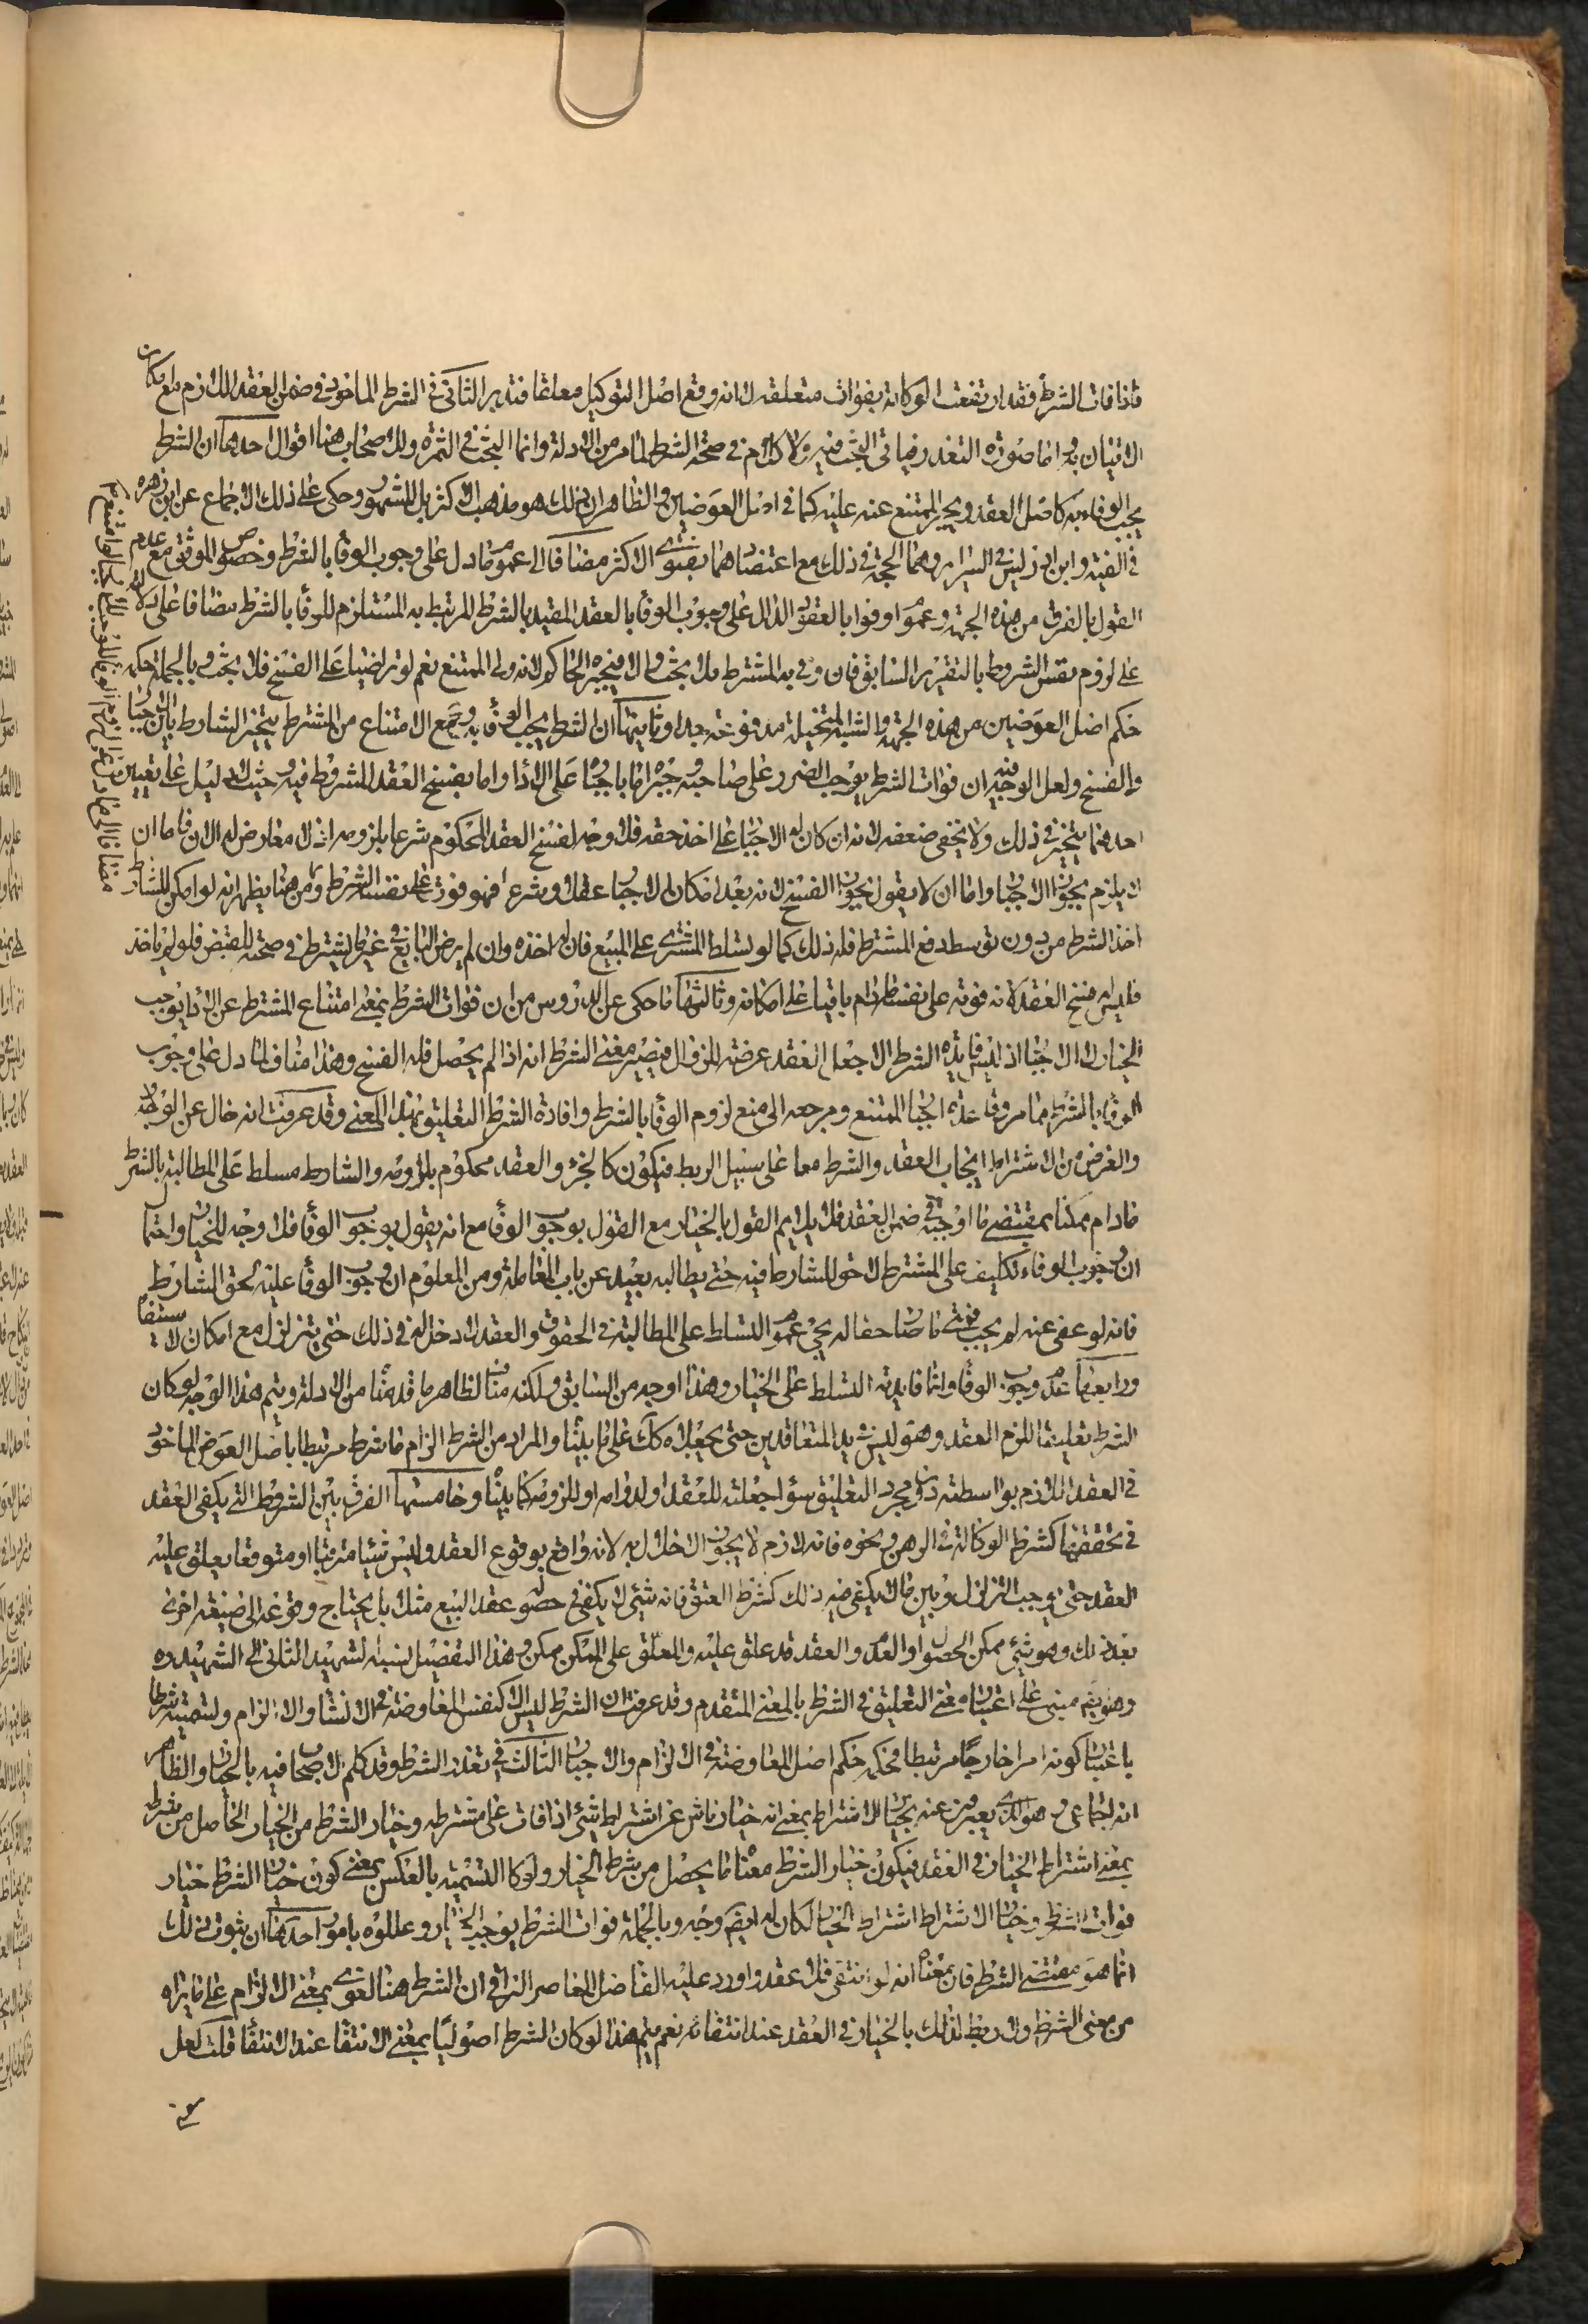 فاذا فات الشرط فقد ارتفعت الوكالة بفوات متعلقه لانه وقع اصل التوكيل معلقا فتدبر الثانى فى الشرط الماخوذ فى ضمن العقد اللازم مع امكان
الاتيان به اما صورة التعذر فياتى البحث فيه ولا كلام فى صحة الشرط لما مر من الادلة وانما البحث فى الثمرة وللاصحاب هنا اقوال احدها ان الشرط
يجب الوفاء به كاصل العقد ويجبر الممتنع عنه عليه كما فى اصل العوضين والظاهر ان ذلك هو مذهب الاكثر بل المشهور وحكى على ذلك الاجماع عن ابن زهره
فى الغنية وابن ادريس فى السرائر وهما الحجة فى ذلك مع اعتضادهما بفتوى الاكثر مضافا الى عموم ما دل على وجوب الوفاء بالشرط وخصوص الموثق مع عدم
القول بالفرق من هذه الجهة وعموم اوفوا بالعقود الدال على وجوب الوفاء بالعقد المقيد بالشرط المرتبط به المستلزم للوفاء بالشرط مضافا على دلالته
على لزوم نفس الشروط بالتقرير السابق فان وفى به المشترط فلا بحث والا فيجبره الحاكم لانه ولى الممتنع نعم لو تراضيا على الفسخ فلا بحث وبالجملة حكمه
حكم اصل العوضين من هذه الجهة والشبه المتخيلة مدفوعة جدا وثانيها ان الشرط يجب الوفاء به ومع الامتناع من المشترط يتخير الشارط بين الاجبار
والفسخ ولعل الوجه فيه ان فوات الشرط يوجب الضرر على صاحبه وجبره اما باجباره على الاداء واما بفسخ العقد المشروط فيه وحيث لا دليل على تعيين
احدهما يتخير فى ذلك ولا يخفى ضعفه لانه ان كان له الاجبار على اخذ حقه فلا وجه لفسخ العقد المحكوم شرعا بلزومه اذ لا معارض له الان فاما ان
لا يلزم بجواز الاجبار واما ان لا يقول بجواز الفسخ لانه بعد امكان الاجبار عقلا وشرعا فهو فوت على نفسه الشرط ومن هنا يظهر انه لو امكن للشارط
اخذ الشرط من دون توسط دفع المشترط فله ذلك كما لو تسلط المشترى على المبيع فان له اخذه وان لم يرض البايع وغير المشترط فى صحته للقبض فلو لم ياخذ
فليس له فسخ العقد لانه فوته على نفسه ما دام باقيا على امكانه وثالثها ما حكى عن الدروس من ان فوات الشرط بمعنى امتناع المشترط عن الاداء يوجب
الخيار لا الاجبار اذ ليس فايدة الشرط الا جعل العقد عرضة للزوال فيصير معنى الشرط انه اذا لم يحصل فله الفسخ وهذا مناف لما دل على وجوب
الوفاء بالشرط مما مر وقاعدة اجبار الممتنع ومرجعه الى منع لزوم الوفاء بالشرط وافادة الشرط التعليق بهذا المعنى وقد عرفت انه خال عن الوجه
والغرض من الاشتراط ايجاب العقد والشرط معا على سبيل الربط فيكون كالجزء والعقد محكوم بلزومه والشارط مسلط على المطالبة بالشرط
ما دام ممكنا بمقتضى ما اوجبه فى ضمن العقد فلا يلايم القول بالخيار مع القول بوجوب الوفاء مع انه يقول بوجوب الوفاء فلا وجه للخيار واحتمال
ان وجوب الوفاء تكليف على المشترط لا حق للشارط فيه حتى يطالبه بعيد عن باب المعاملة ومن المعلوم ان وجوب الوفاء عليه لحق الشارط
فانه لو عفى عنه لم يجب فمتى ما صار حقا له يجئ عموم التسلط على المطالبة فى الحقوق والعقد لا دخل له فى ذلك حتى يتزلزل مع امكان الاستيفاء
ورابعها عدم وجوب الوفاء وانما فايدته التسلط على الخيار وهذا اوجه من السابق ولكنه مناف لظاهر ما قدمنا من الادلة ويتم هذا الوجه لو كان
الشرط تعليقا للزوم العقد وهو ليس بيد المتعاقدين حتى يجعلاه كك على ما بيناه والمراد من الشرط الزام ما شرط مرتبطا باصل العوض الماخوذ
فى العقد اللازم بواسطته دون مجرد التعليق سواء جعلته للعقد او لدوامه او للزومه كما بيناه وخامسها الفرق بين الشروط التى يكفى العقد
فى تحققها كشرط الوكالة فى الرهن ونحوه فانه لازم لا يجوز الاخلال به لانه واقع بوقوع العقد وليس شيئا مترقبا او متوقعا يعلق عليه
العقد حتى يوجب التزلزل وبين ما لا يكفى فيه ذلك كشرط العتق فانه شئ لا يكفى فى حصوله عقد البيع مثلا بل يحتاج وقوعه الى صيغة اخرى
بعد ذلك وهو شئ ممكن الحصول او العدم والعقد قد علق عليه والمعلق على الممكن ممكن وهذا التفصيل نسبه الشهيد الثانى الى الشهيد ره
وهو ايضم مبنى على اعتبار معنى التعليق فى الشرط بالمعنى المتقدم وقد عرفت ان الشرط ليس الا كنفس المعاوضة فى الانشاء والالزام ولتسميته شرطا
باعتبار كونه امرا خارجا مرتبطا فحكمه حكم اصل المعاوضة فى الالزام والاجبار الثالث فى تعذر الشرط وقد حكم الاصحاب فيه بالخيار والظاهر
انه اجماعى وهو الذى يعبرون عنه بخيار الاشتراط بمعنى انه خيار ناش عن اشتراط شئ اذا فات على مشترطه وخيار الشرط من الخيار الحاصل من شرطه
بمعنى اشتراط الخيار فى العقد فيكون خيار الشرط معناه ما يحصل من شرط الخيار ولو كان التسمية بالعكس بمعنى كون خيار الشرط خيار
فوات الشرط وخيار الاشتراط اشتراط الخيار لكان له ايضم وجه وبالجملة فوات الشرط يوجب الخيار وعللوه بامور احدها ان ثبوت ذلك
انما هو مقتضى الشرط فان معناه انه لو انتفى فلا عقد واورد عليه الفاضل المعاصر النراقى ان الشرط هنا لغوى بمعنى الالزام على ما يراه
من معنى الشرط ولا ربط لذلك بالخيار فى العقد عند انتفائه نعم يتم هذا لو كان الشرط اصوليا بمعنى الانتفاء عند الانتفاء قلت لعل